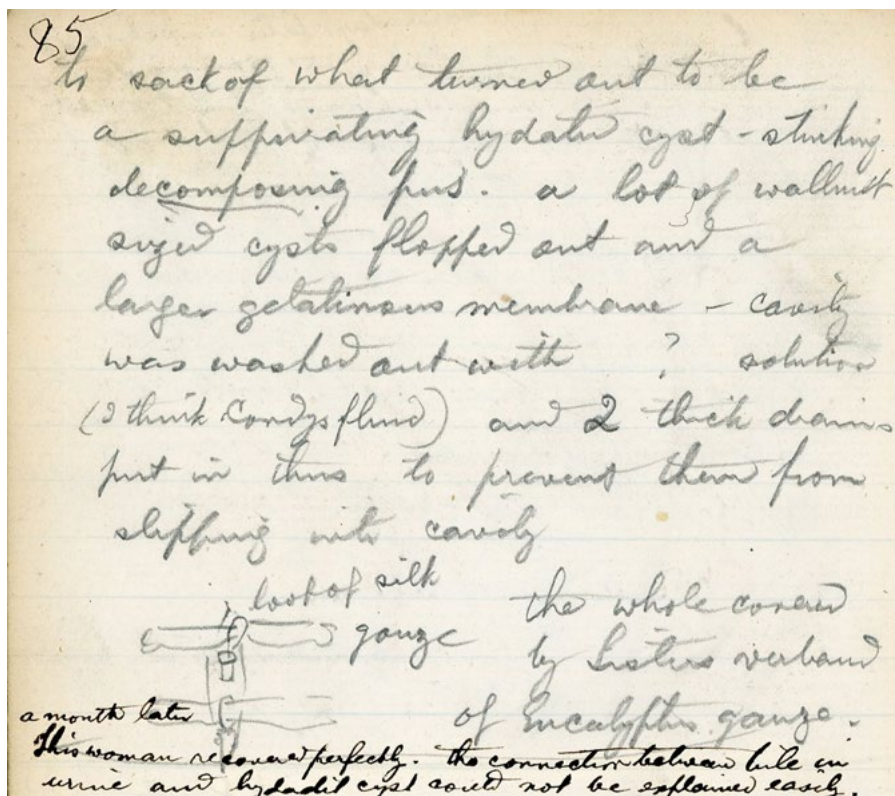 85
to sack of what turned out to be
a suppurating hydatid cyst - stinking
decomposing pus. a lot of wallnut
sized cysts flopped out and a
large gelatinous membrane - cavity
was washed out with ? solution
(I think Condys fluid) and 2 thick drains
put in thus to prevent them from
slipping into cavity
loop of silk
gauze
the whole covered
by Sisters verband
of Eucalyptus gauze.
a month later
This woman recovered perfectly. the connection between bile in
urine and hydadit cyst could not be explained easily.